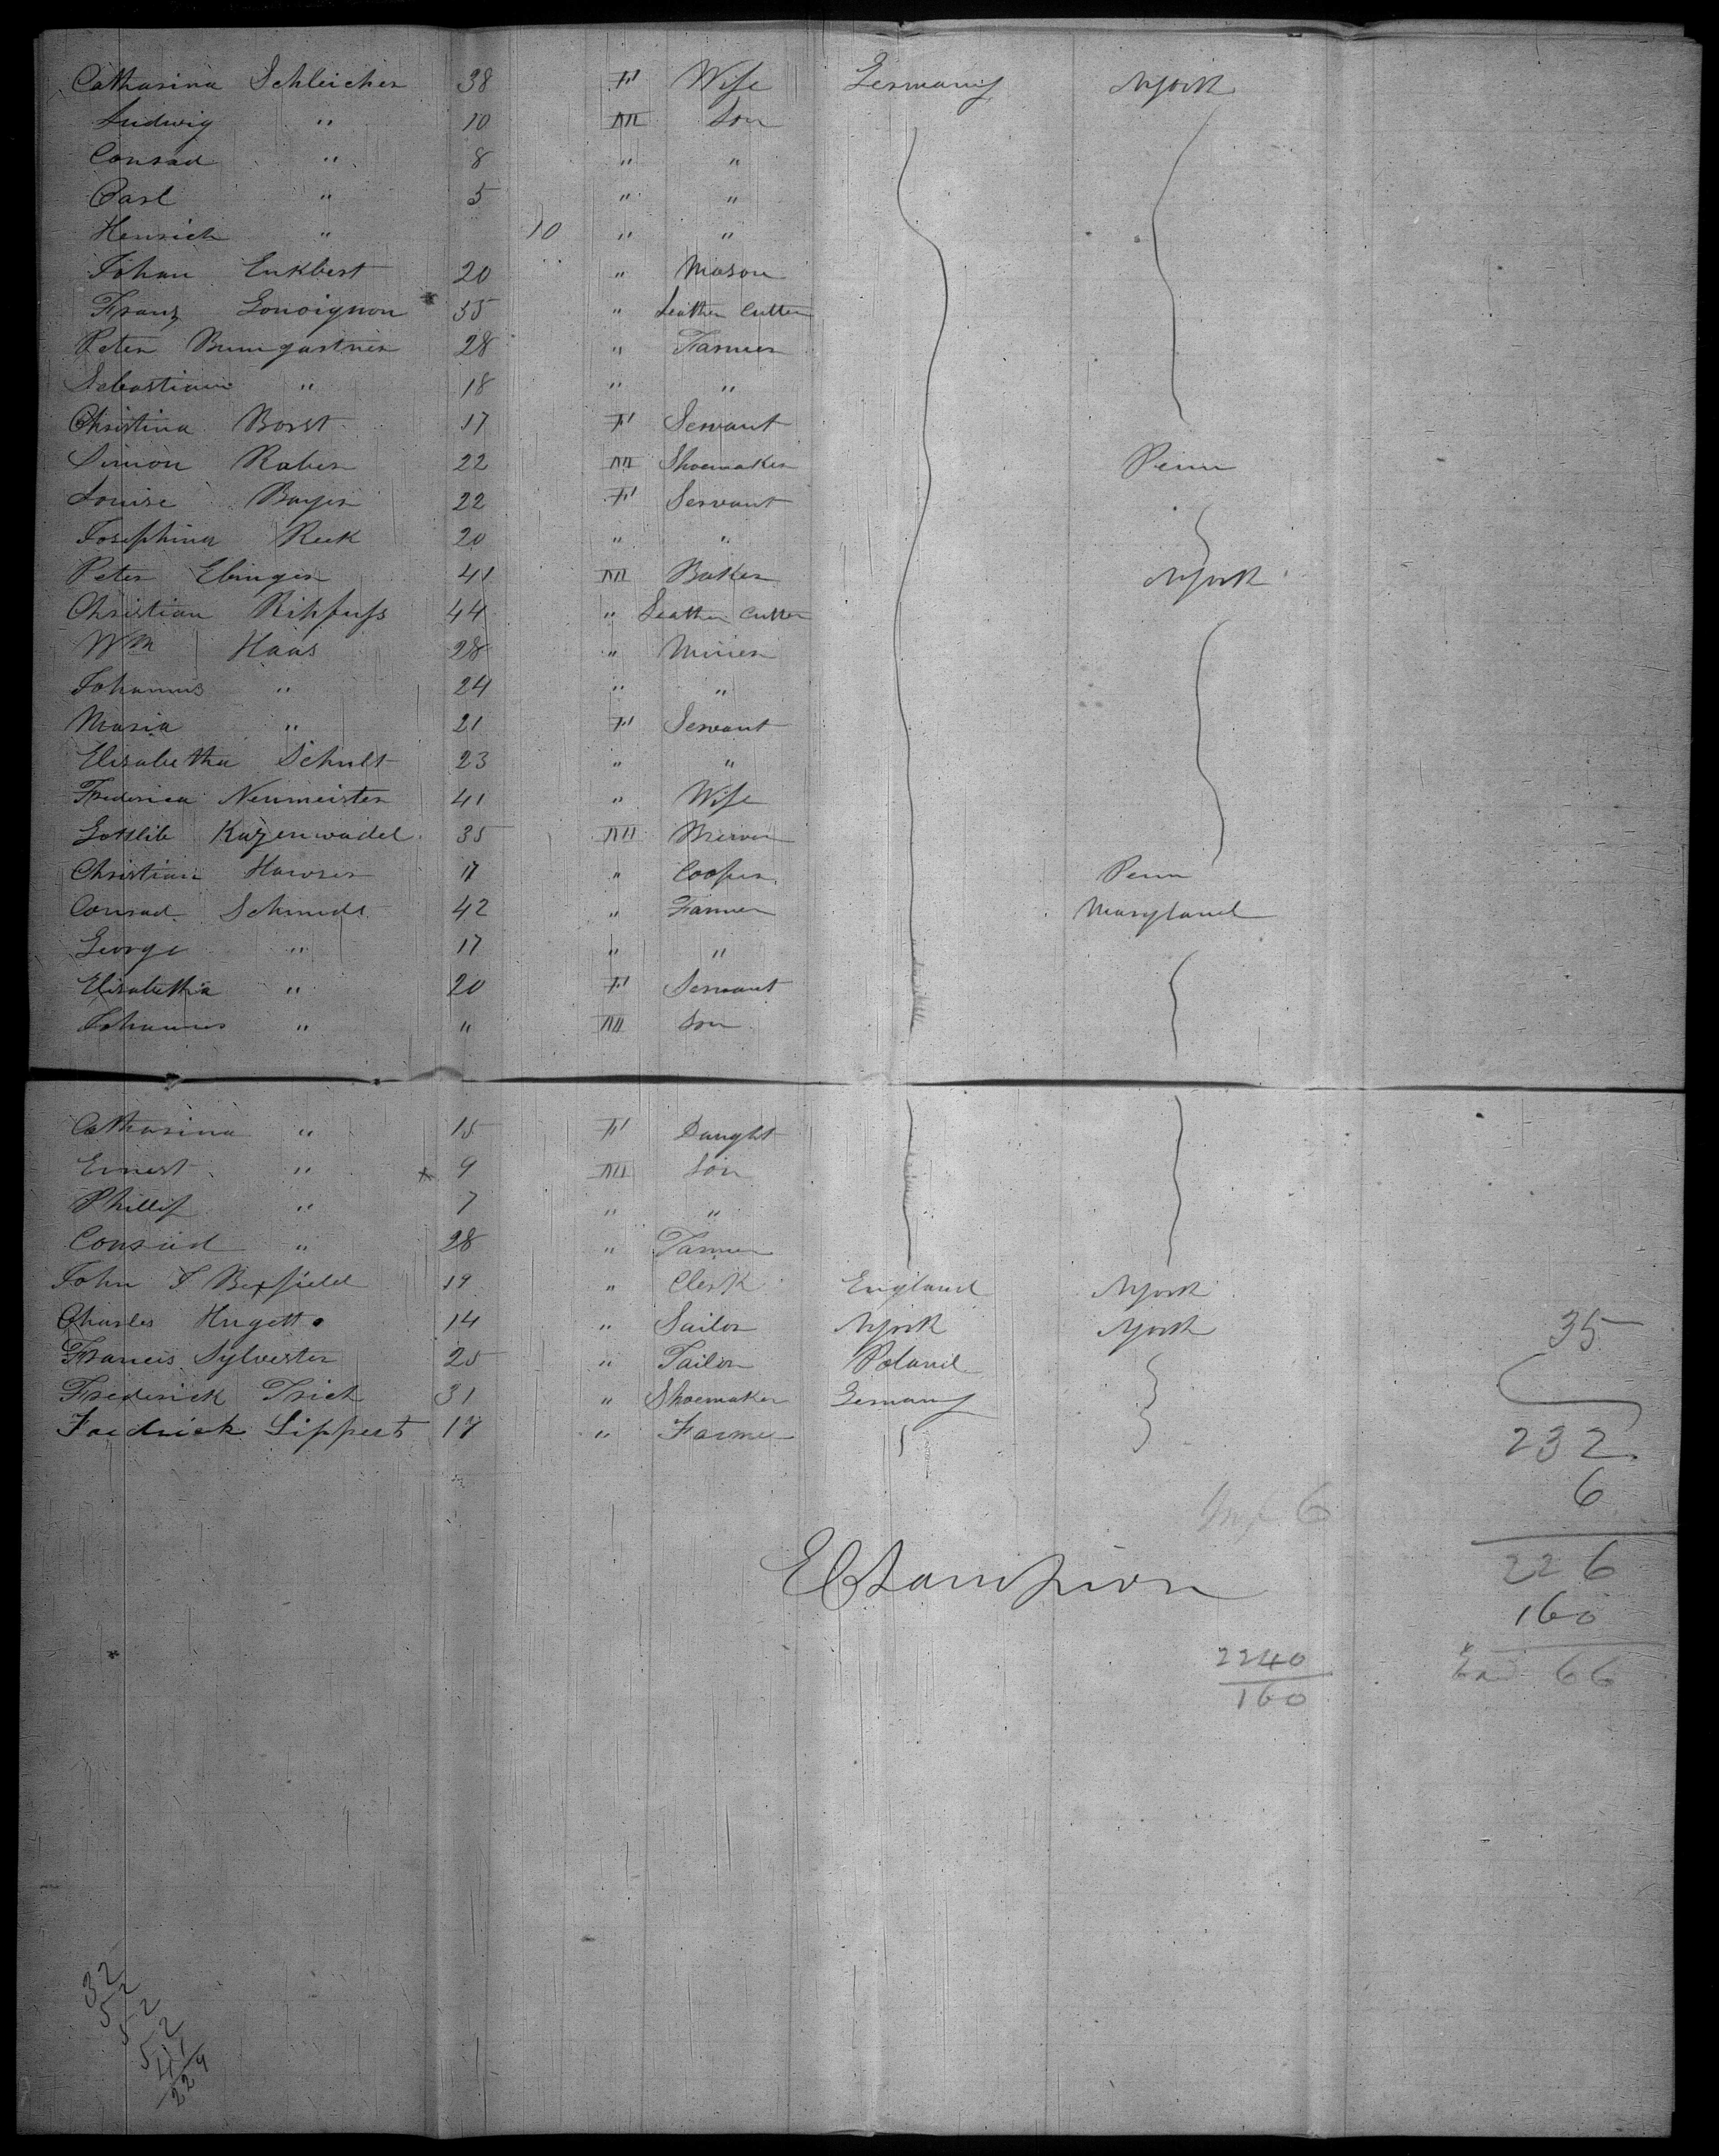 Catharina Schleicher 38 F Wife Germany NYork
Ludwig " 10 M Son
Conrad " 8 " "
Carl " 5 " "
Henrich " 10 " "
Johan Enkbert 20 " Mason
Franz 35 " Leather Cutter
Peter Bumgartner 28 " Farmer
Sebastian " 18 " "
Christina Borst 17 F Servant
Simon Raber 22 M Shoemaker Penn
Louise Bayer 22 F Servant
Josephina Reek 20 " "
Peter Ebinger 41 M Baker NYork
Christian 44 " Leather Cutter
Wm Haas 28 " Miner
Johannes " 24 " "
Maria " 21 F Servant
Elisabetha Schult 23 " "
Frederica Neumeister 41 " Wife
Gottlieb Kazenwadel 35 M
Christian 17 " Cooper Penn
Conrad Schmidt 42 " Farmer Maryland
George " 17 " "
Elisabetha " 20 F Servant
Johannes " " M Son
Catharina " 15 F Daught
Ernest " * 9 M Son
Phillip " 7 " "
Conrad " 28 " Farmer
John T Bexfield 19 " Clerk England NYork
Charles Hugett 14 " Sailor NYork NYork
Francis Sylvester 25 " Tailor Poland
Frederick Trich 31 " Shoemaker Germany
Fredrick Lippert 17 " Farmer
35
232
6
Inf 6
226
160
66
E Champion
2240
160
32
52
52
52
41
229